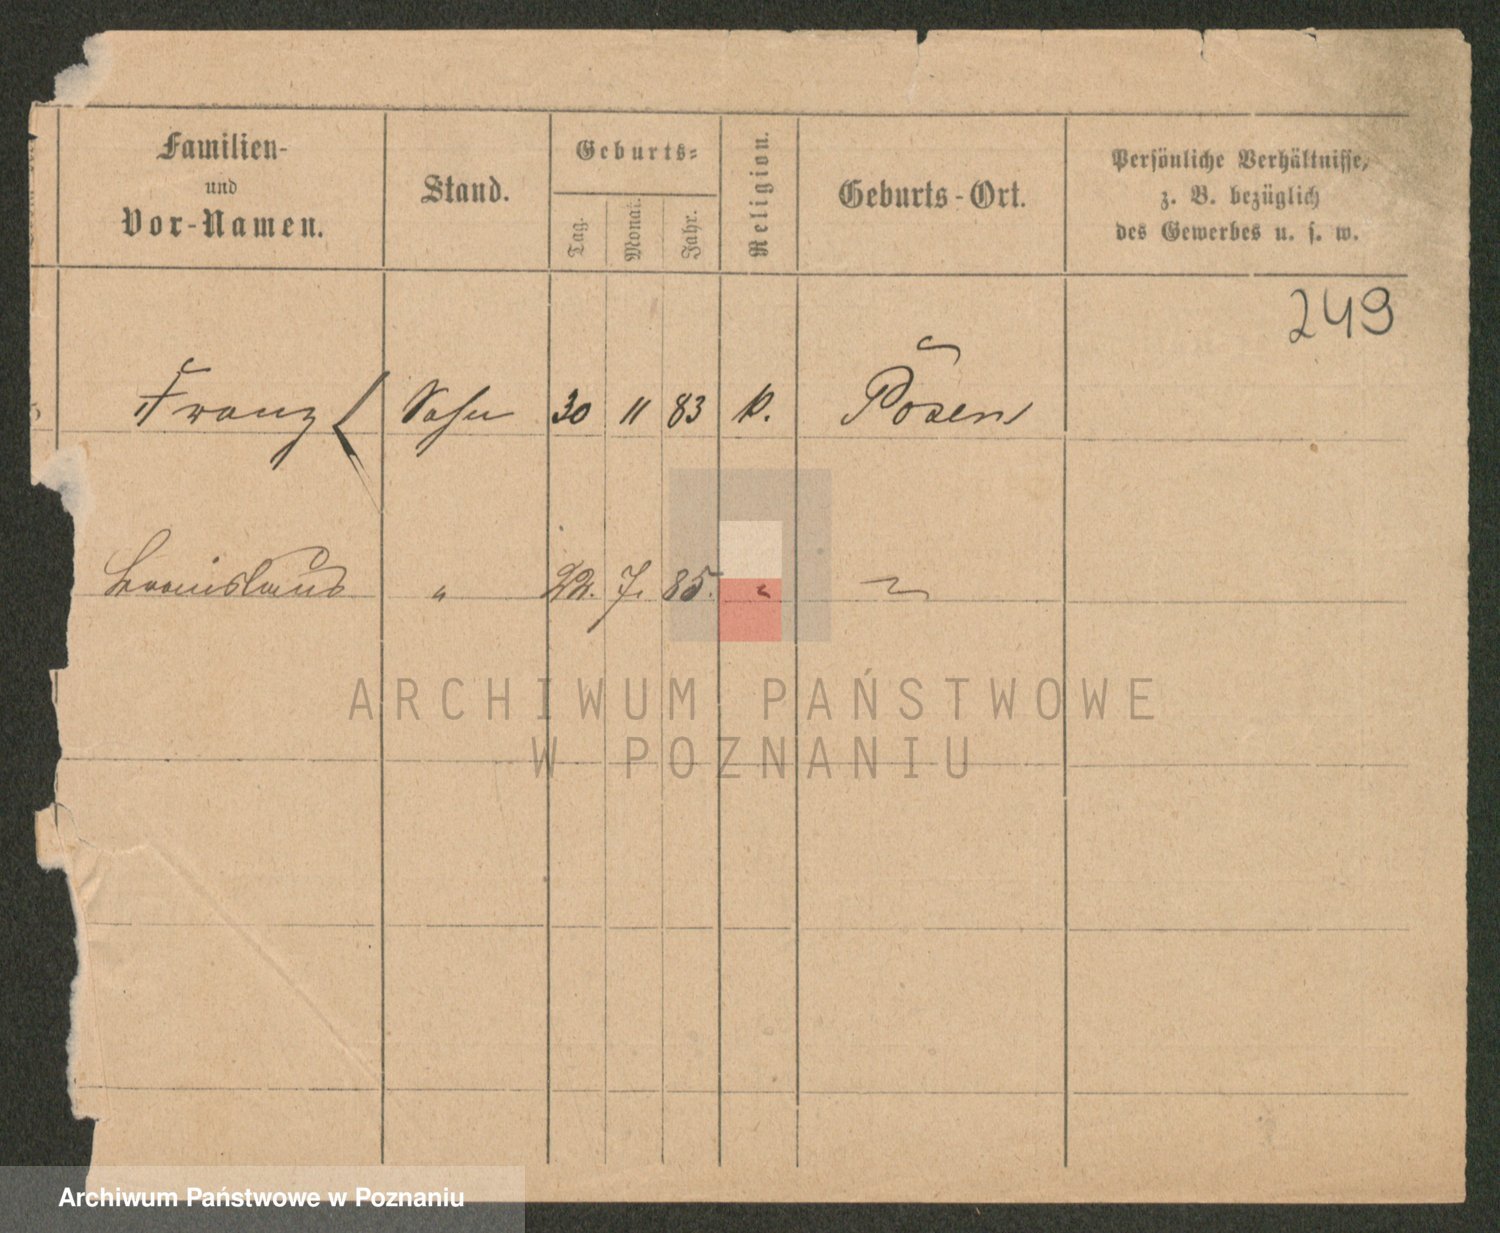 Familien-
und
Vor-Namen.
Stand.
Geburts-
Tag.
Monat.
Jahr.
Religion.
Geburts-Ort.
Persönliche Verhältnisse,
z. B. bezüglich
des Gewerbes u. s. w.
249
Franz Sohn 30 11 83 k. Posen
Bronislaus " 22. 7. 85. " "
ARCHIWUM PAŃSTWOWE
W POZNANIU
Archiwum Państwowe w Poznaniu